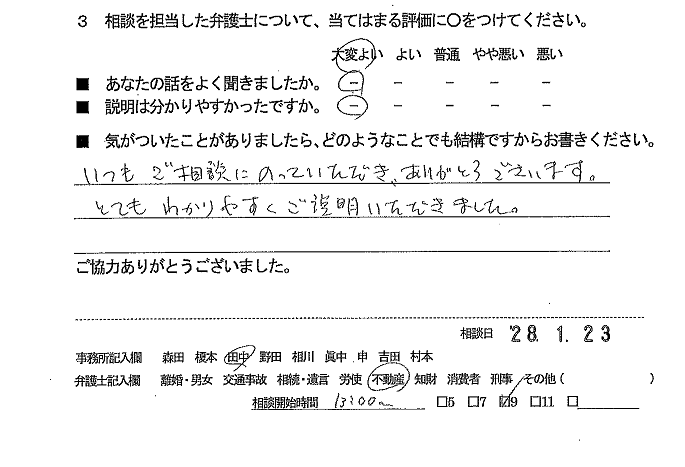 3 相談を担当した弁護士について、当てはまる評価に〇をつけてください。
大変よい よい 普通 やや悪い 悪い
■ あなたの話をよく聞きましたか。 － － － － －
■ 説明は分かりやすかったですか。 － － － － －
■ 気がついたことがありましたら、どのようなことでも結構ですからお書きください。
いつも ご相談にのっていただき、ありがとうございます。
とても わかりやすく ご説明いただきました。
ご協力ありがとうございました。
相談日 '28. 1. 23
事務所記入欄 森田 榎本 田中 野田 相川 眞中 申 吉田 村本
弁護士記入欄 離婚・男女 交通事故 相続・遺言 労使 不動産 知財 消費者 刑事 その他 ( )
相談開始時間 13:00~ □5 □7 ☑9 □11 □